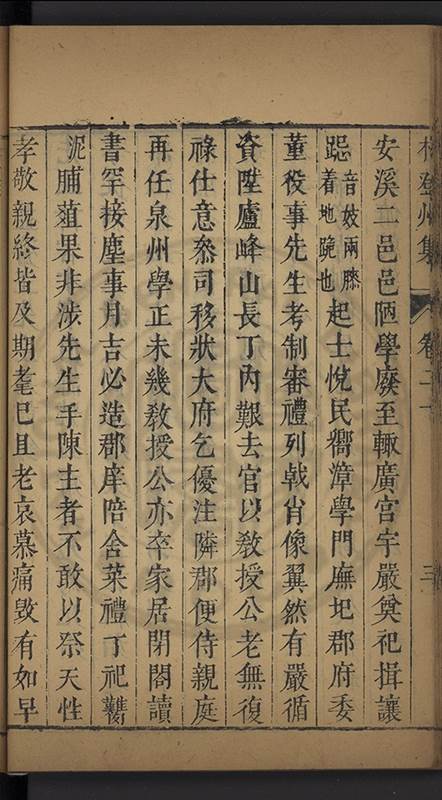 林登州集 卷二十 三
安溪二邑邑陋學廢至輙廣宮宇嚴奠祀揖讓
跽音妓兩膝着地跪也起士悅民嚮漳學門廡圯郡府委
董役事先生考制審禮列戟肖像翼然有嚴循
資陞廬峰山長丁內艱去官以敎授公老無復
祿仕意叅司移狀大府乞優注隣郡便侍親庭
再任泉州學正未幾敎授公亦卒家居閉閤讀
書罕接塵事月吉必造郡庠陪舍菜禮丁祀鸞
泥脯葅果非涉先生手陳主者不敢以祭天性
孝敬親終皆及期耄巳且老哀慕痛毀有如早